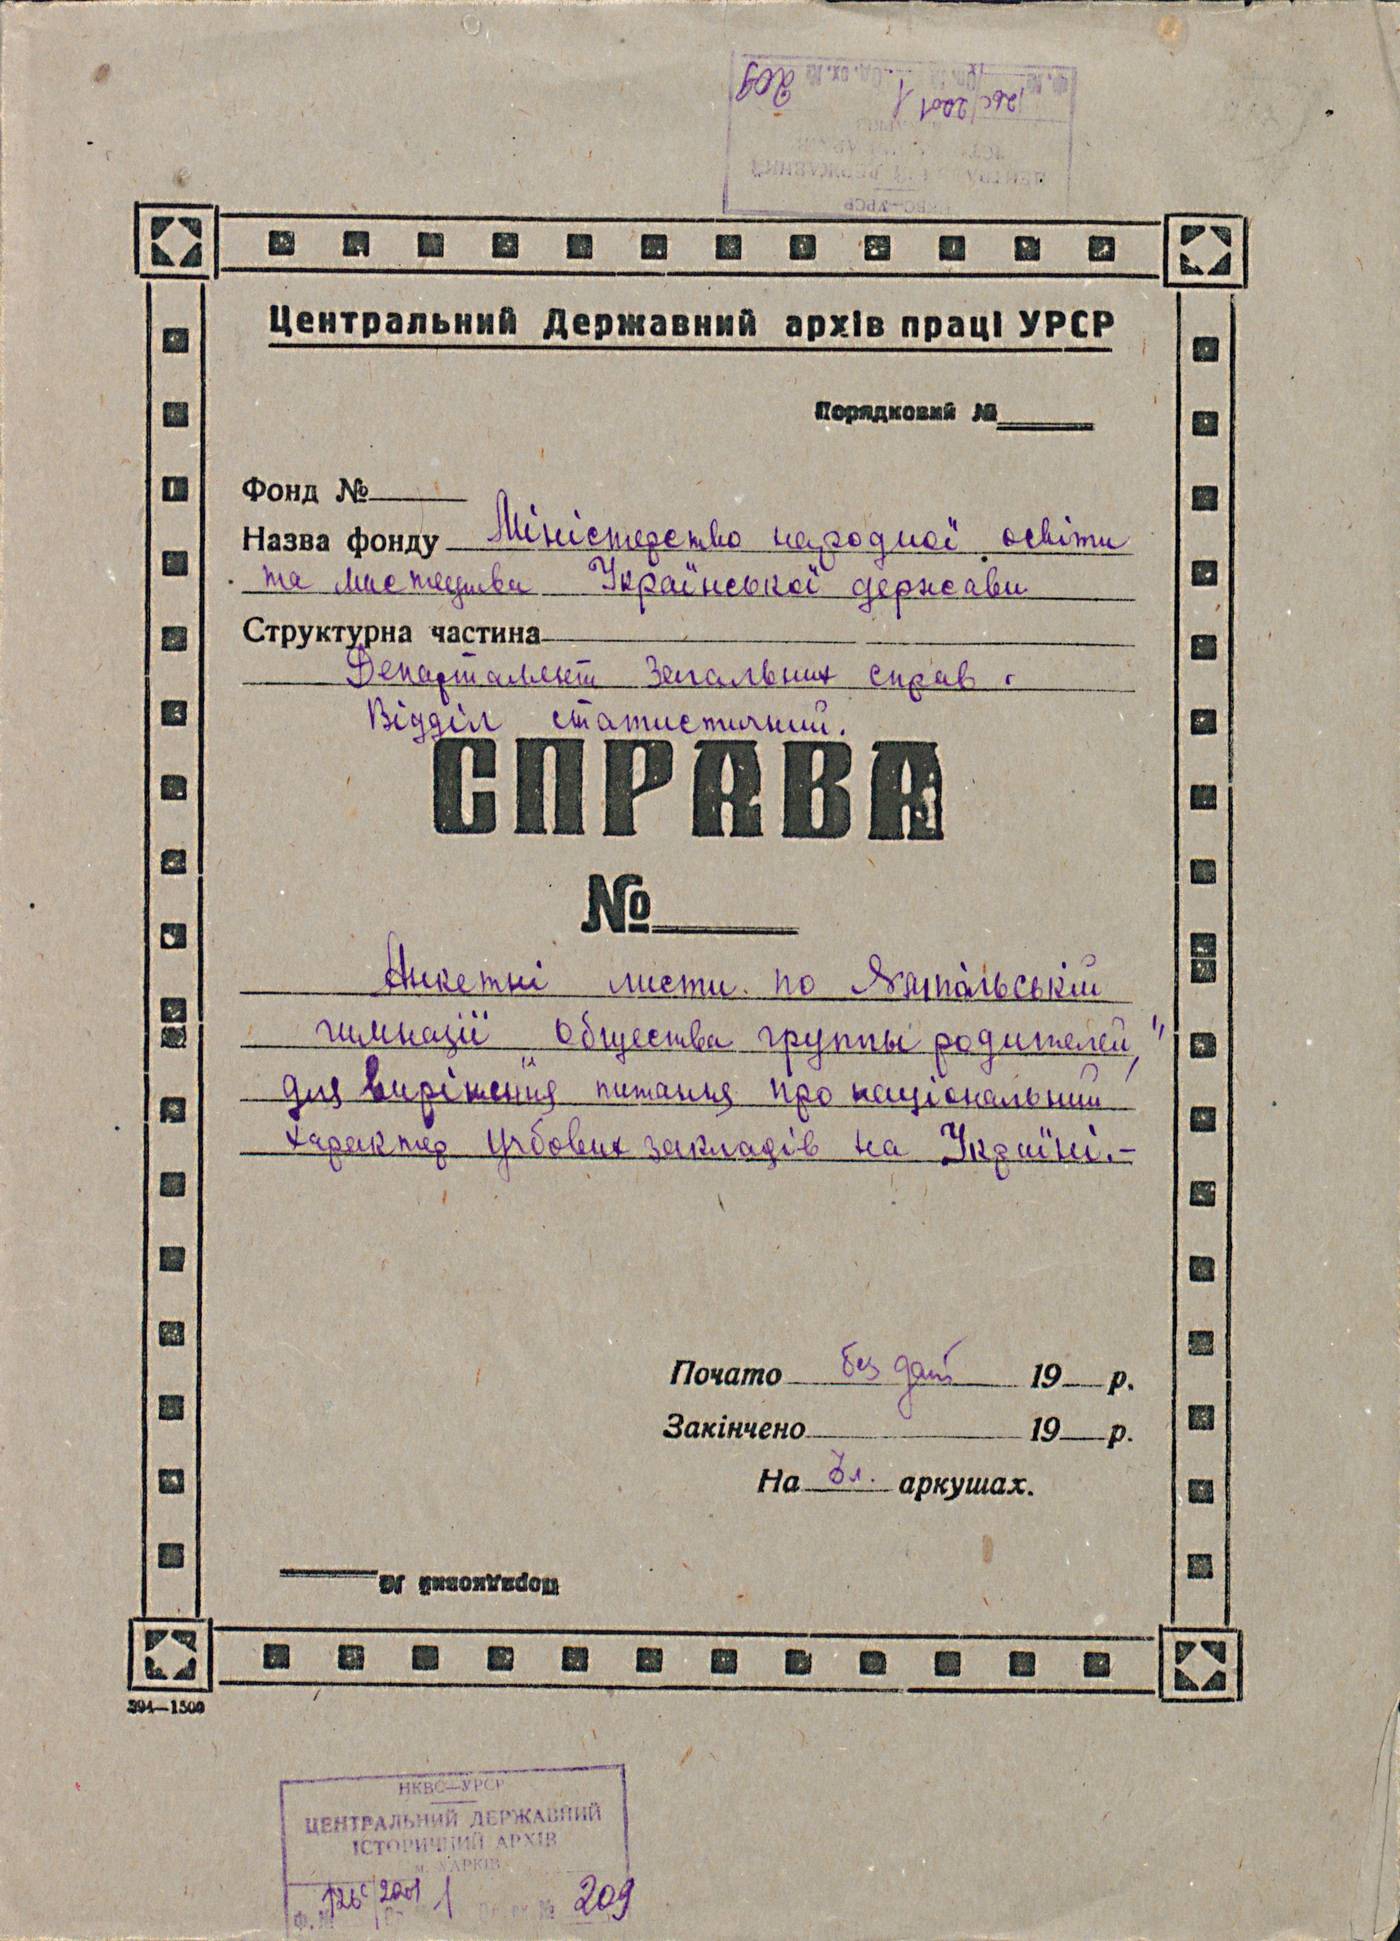 Ф. № Оп. № Од. зх. №
126с/2201 1 209
ЦЕНТРАЛЬНИЙ ДЕРЖАВНИЙ
НКВС—УРСР
Центральний Державний архів праці УРСР
Порядковий №
Фонд №
Назва фонду Міністерство народної освіти
та мистецтва Української держави
Структурна частина
Департамент загальних справ.
Відділ статистичний.
СПРАВА
№
Анкетні листи по Ямпільській
гимназії общества группы родителей"
для вирішення питання про національний
характер учбових закладів на Україні.—
Почато без дат 19 р.
Закінчено 19 р.
На 3л. аркушах.
Порядковий №
394—1500
НКВС—УРСР
ЦЕНТРАЛЬНИЙ ДЕРЖАВНИЙ
ІСТОРИЧНИЙ АРХІВ
м. ХАРКІВ
Ф. № 126с/2201 1 209